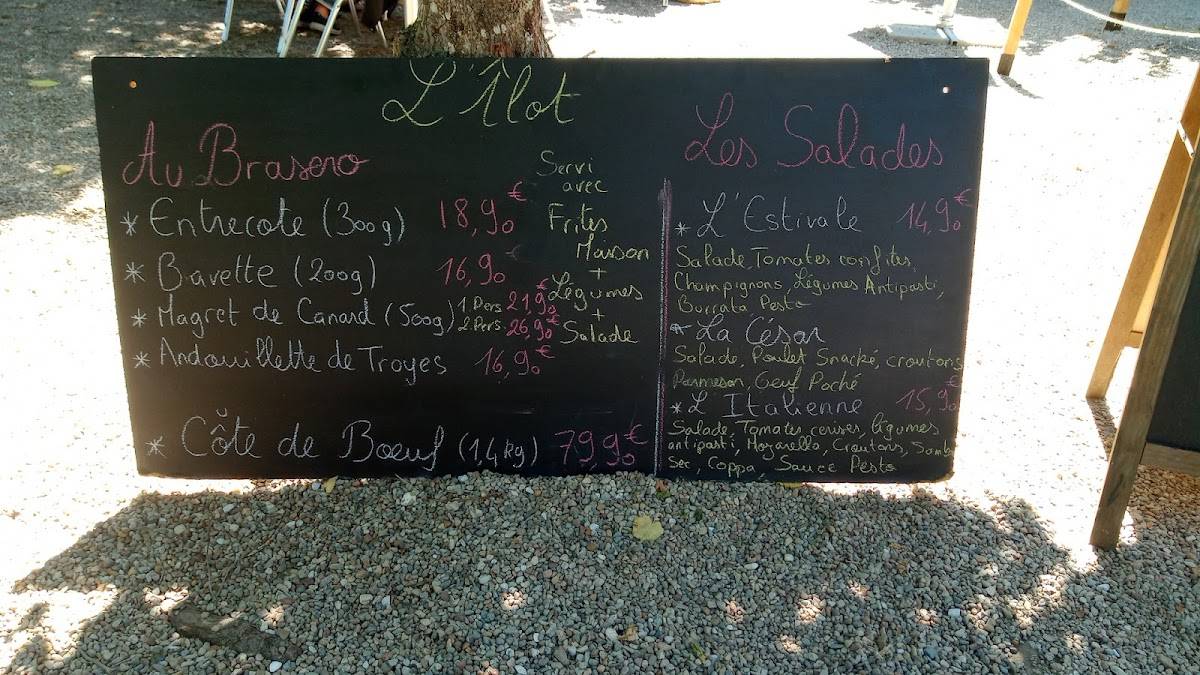 L'Îlot
Au Brasero
* Entrecote (300g) 18,90€
* Bavette (200g) 16,90
* Magret de Canard (500g) 1.Pers 21,90€
2.Pers. 26,90€
* Andouillette de Troyes 16,90€
* Côte de Boeuf (1,4kg) 79,90€
Servi
avec
Frites
Maison
+
Légumes
+
Salade
Les Salades
* L'Estivale 14,90€
Salade, Tomates confites,
Champignons, Légumes Antipasti,
Burrata, Pesto
* La César
Salade, Poulet Snacké, croutons,
Parmesan, Oeuf Poché
* L'Italienne 15,90€
Salade, Tomates cerises, légumes
antipasti, Mozarella, Croutons, Jambon
sec, Coppa, Sauce Pesto